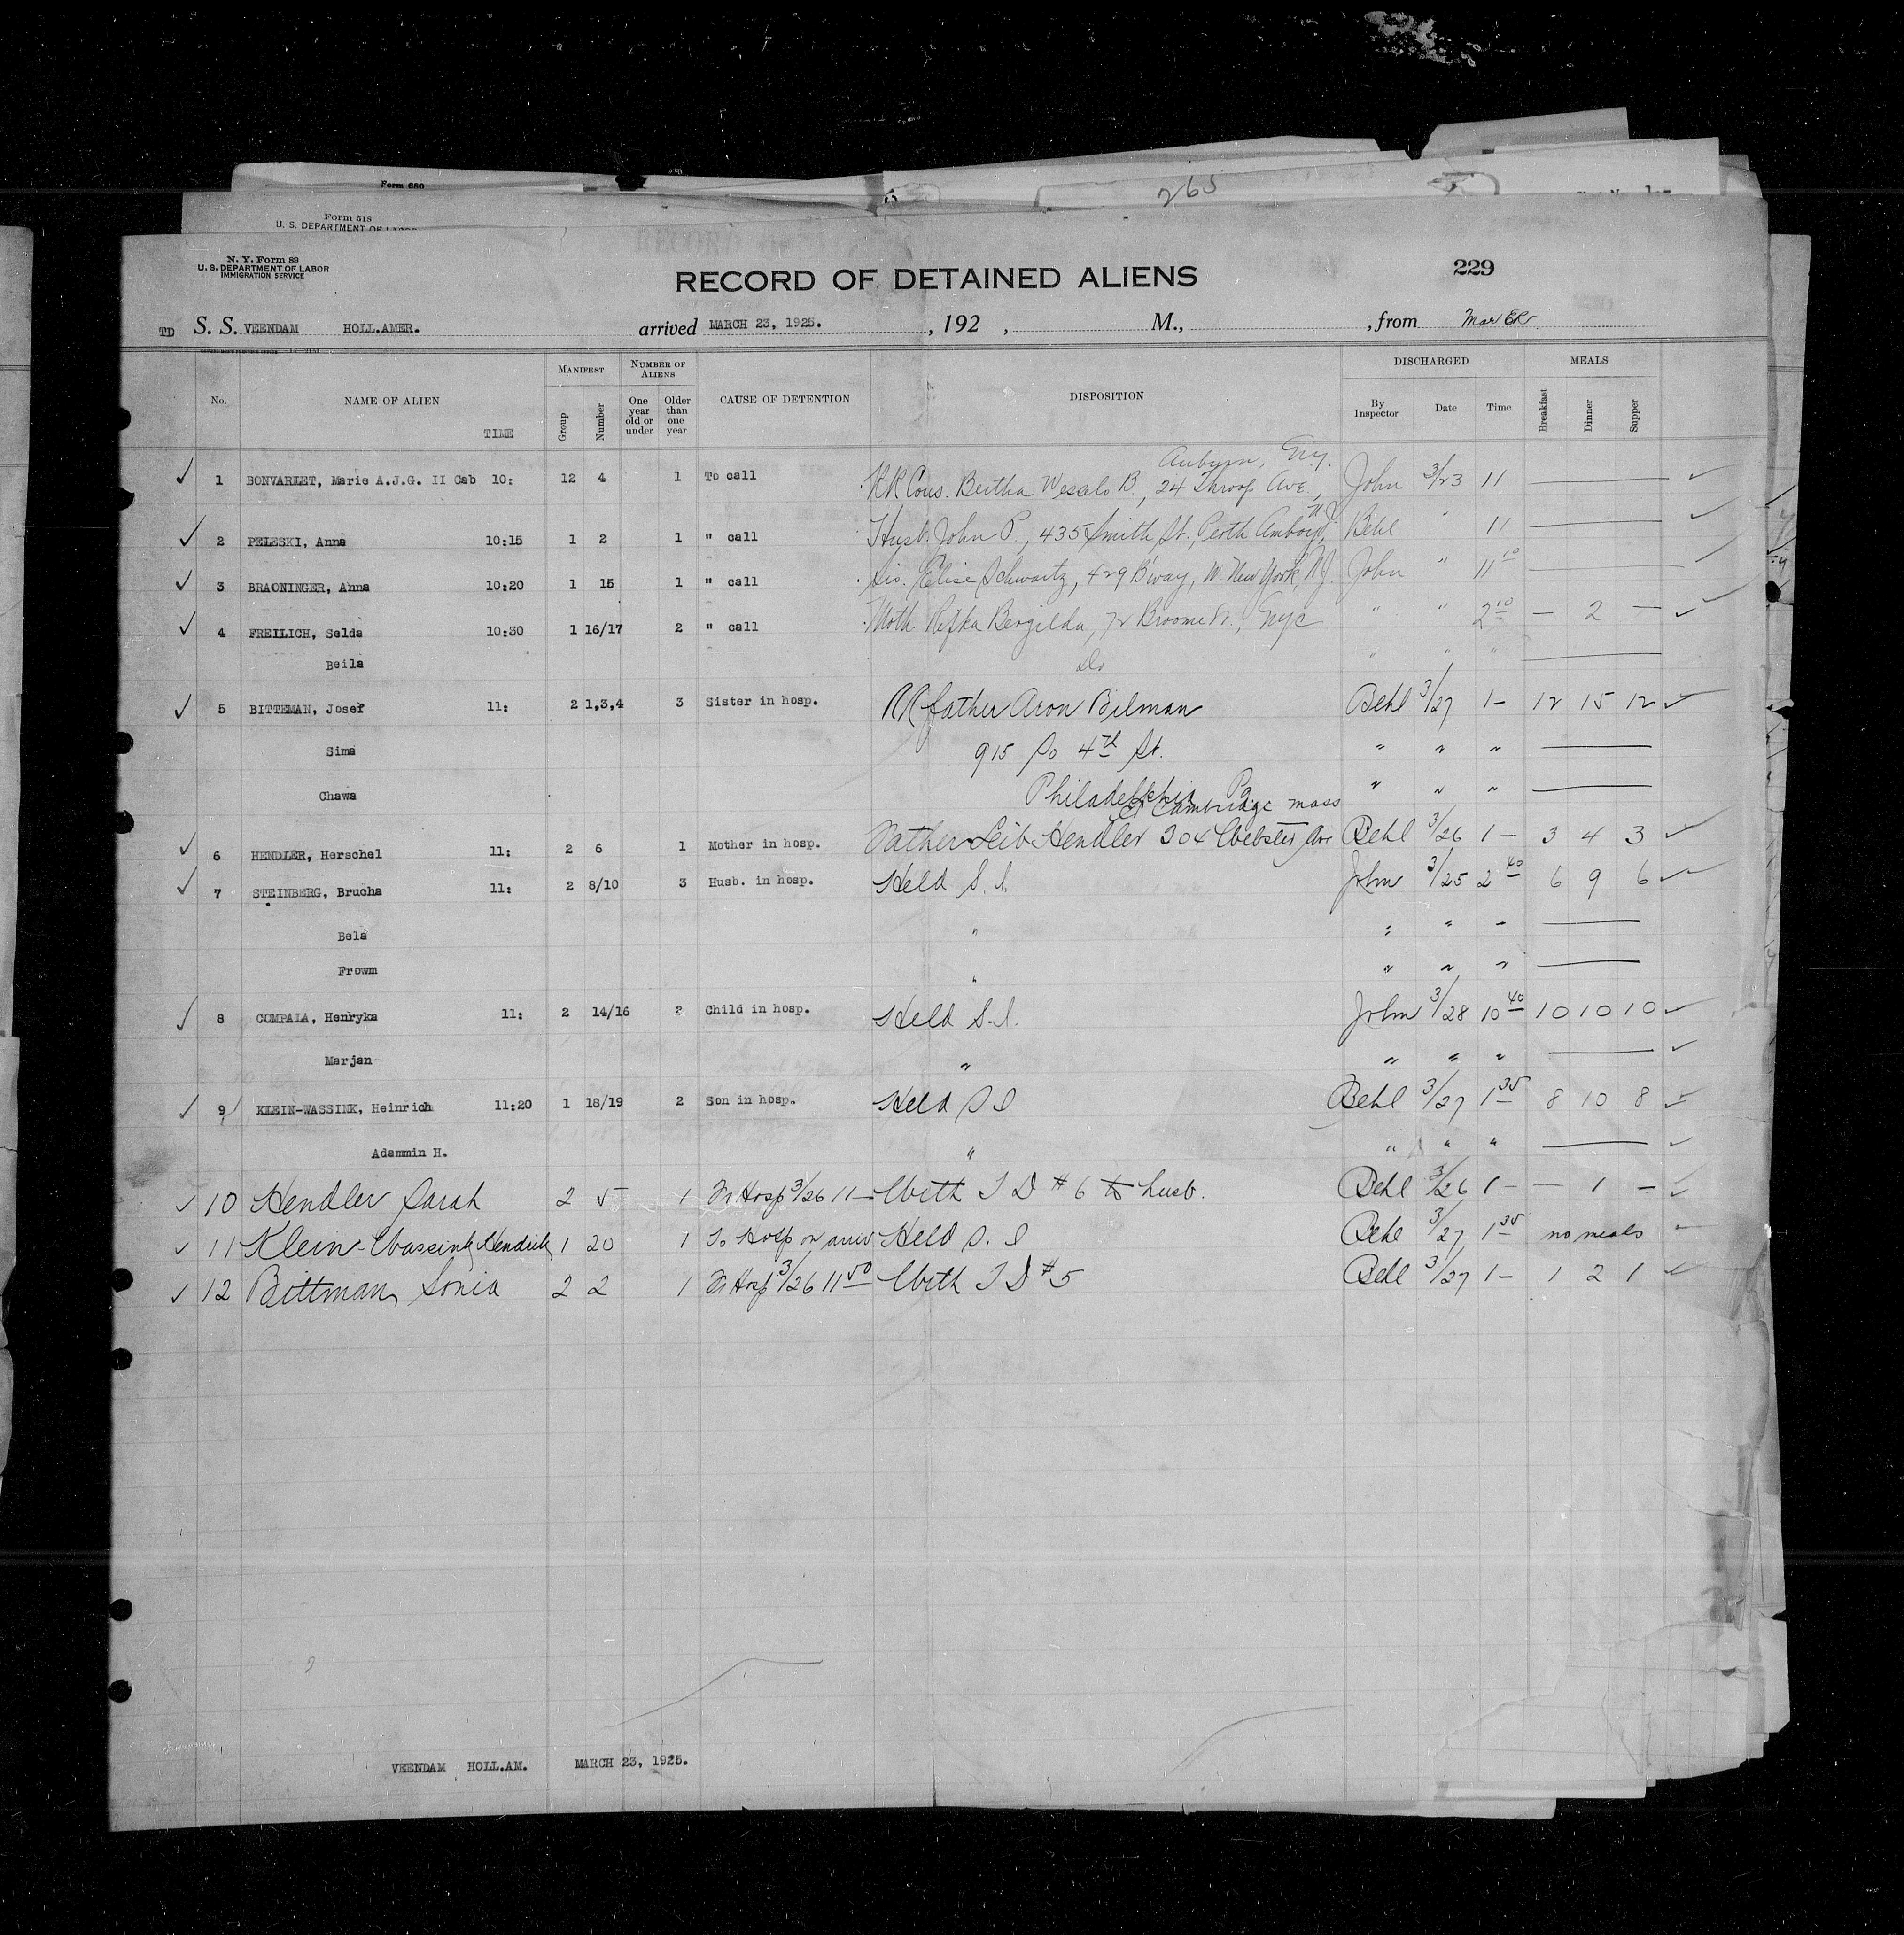 Form 680
265
Form 518
U. S. DEPARTMENT OF LABOR
N. Y. Form 89
U. S. DEPARTMENT OF LABOR
IMMIGRATION SERVICE
RECORD OF DETAINED ALIENS
229
TD S. S. VEENDAM HOLL.AMER. arrived MARCH 23, 1925. , 192 , M., , from
No. NAME OF ALIEN TIME MANIFEST Group Number NUMBER OF ALIENS One year old or under Older than one year CAUSE OF DETENTION DISPOSITION DISCHARGED By Inspector Date Time MEALS Breakfast Dinner Supper
Auburn, N.Y.
✓ 1 BONVARLET, Marie A.J.G. II Cab 10: 12 4 1 To call RR Cous. Bertha Wesalo B, 24 Throop Ave., John 3/23 11 — ✓
N.J.
✓ 2 PELESKI, Anna 10:15 1 2 1 " call Husb. John P., 435 Smith St., Perth Amboy, Behl " 11 — ✓
✓ 3 BRAONINGER, Anna 10:20 1 15 1 " call Sis. Elise Schwartz, 429 B'way, W. New York, N.J. John " 11 10 — ✓
✓ 4 FREILICH, Selda 10:30 1 16/17 2 " call Moth Rifka Bergilda, 72 Broome St., Nyc " " 2 10 — 2 — ✓
Beila Do " " " —
✓ 5 BITTEMAN, Josef 11: 2 1,3,4 3 Sister in hosp. RR father Aron Bilman Behl 3/27 1- 12 15 12 ✓
Sima 915 So 4th St. " " " —
Chawa Philadelphia Pa " " " —
E Cambridge mass
✓ 6 HENDLER, Herschel 11: 2 6 1 Mother in hosp. Father Leib Hendler 304 Webster Ave Behl 3/26 1- 3 4 3 ✓
✓ 7 STEINBERG, Brucha 11: 2 8/10 3 Husb. in hosp. Held S.I. John 3/25 2 40 6 9 6 ✓
Bela " " " " —
Frowm " " " " —
✓ 8 COMPALA, Henryka 11: 2 14/16 2 Child in hosp. Held S.I. John 3/28 10 40 10 10 10 ✓
Marjan " " " " — ✓
✓ 9 KLEIN-WASSINK, Heinrich 11:20 1 18/19 2 Son in hosp. Held S I Behl 3/27 1 35 8 10 8 ✓
Adammin H. " " " " — ✓
✓ 10 Hendler Sarah 2 5 1 Fr Hosp 3/26 11- With T D #6 to husb. Behl 3/26 1- — 1 — ✓
✓ 11 Klein-Wassink Hendrik 1 20 1 To Hosp on arriv Held S. I Behl 3/27 1 35 no meals ✓
✓ 12 Bittman Sonia 2 2 1 Fr Hosp 3/26 11 50 With T D #5 Behl 3/27 1- 1 2 1 ✓
VEENDAM HOLL.AM. MARCH 23, 1925.